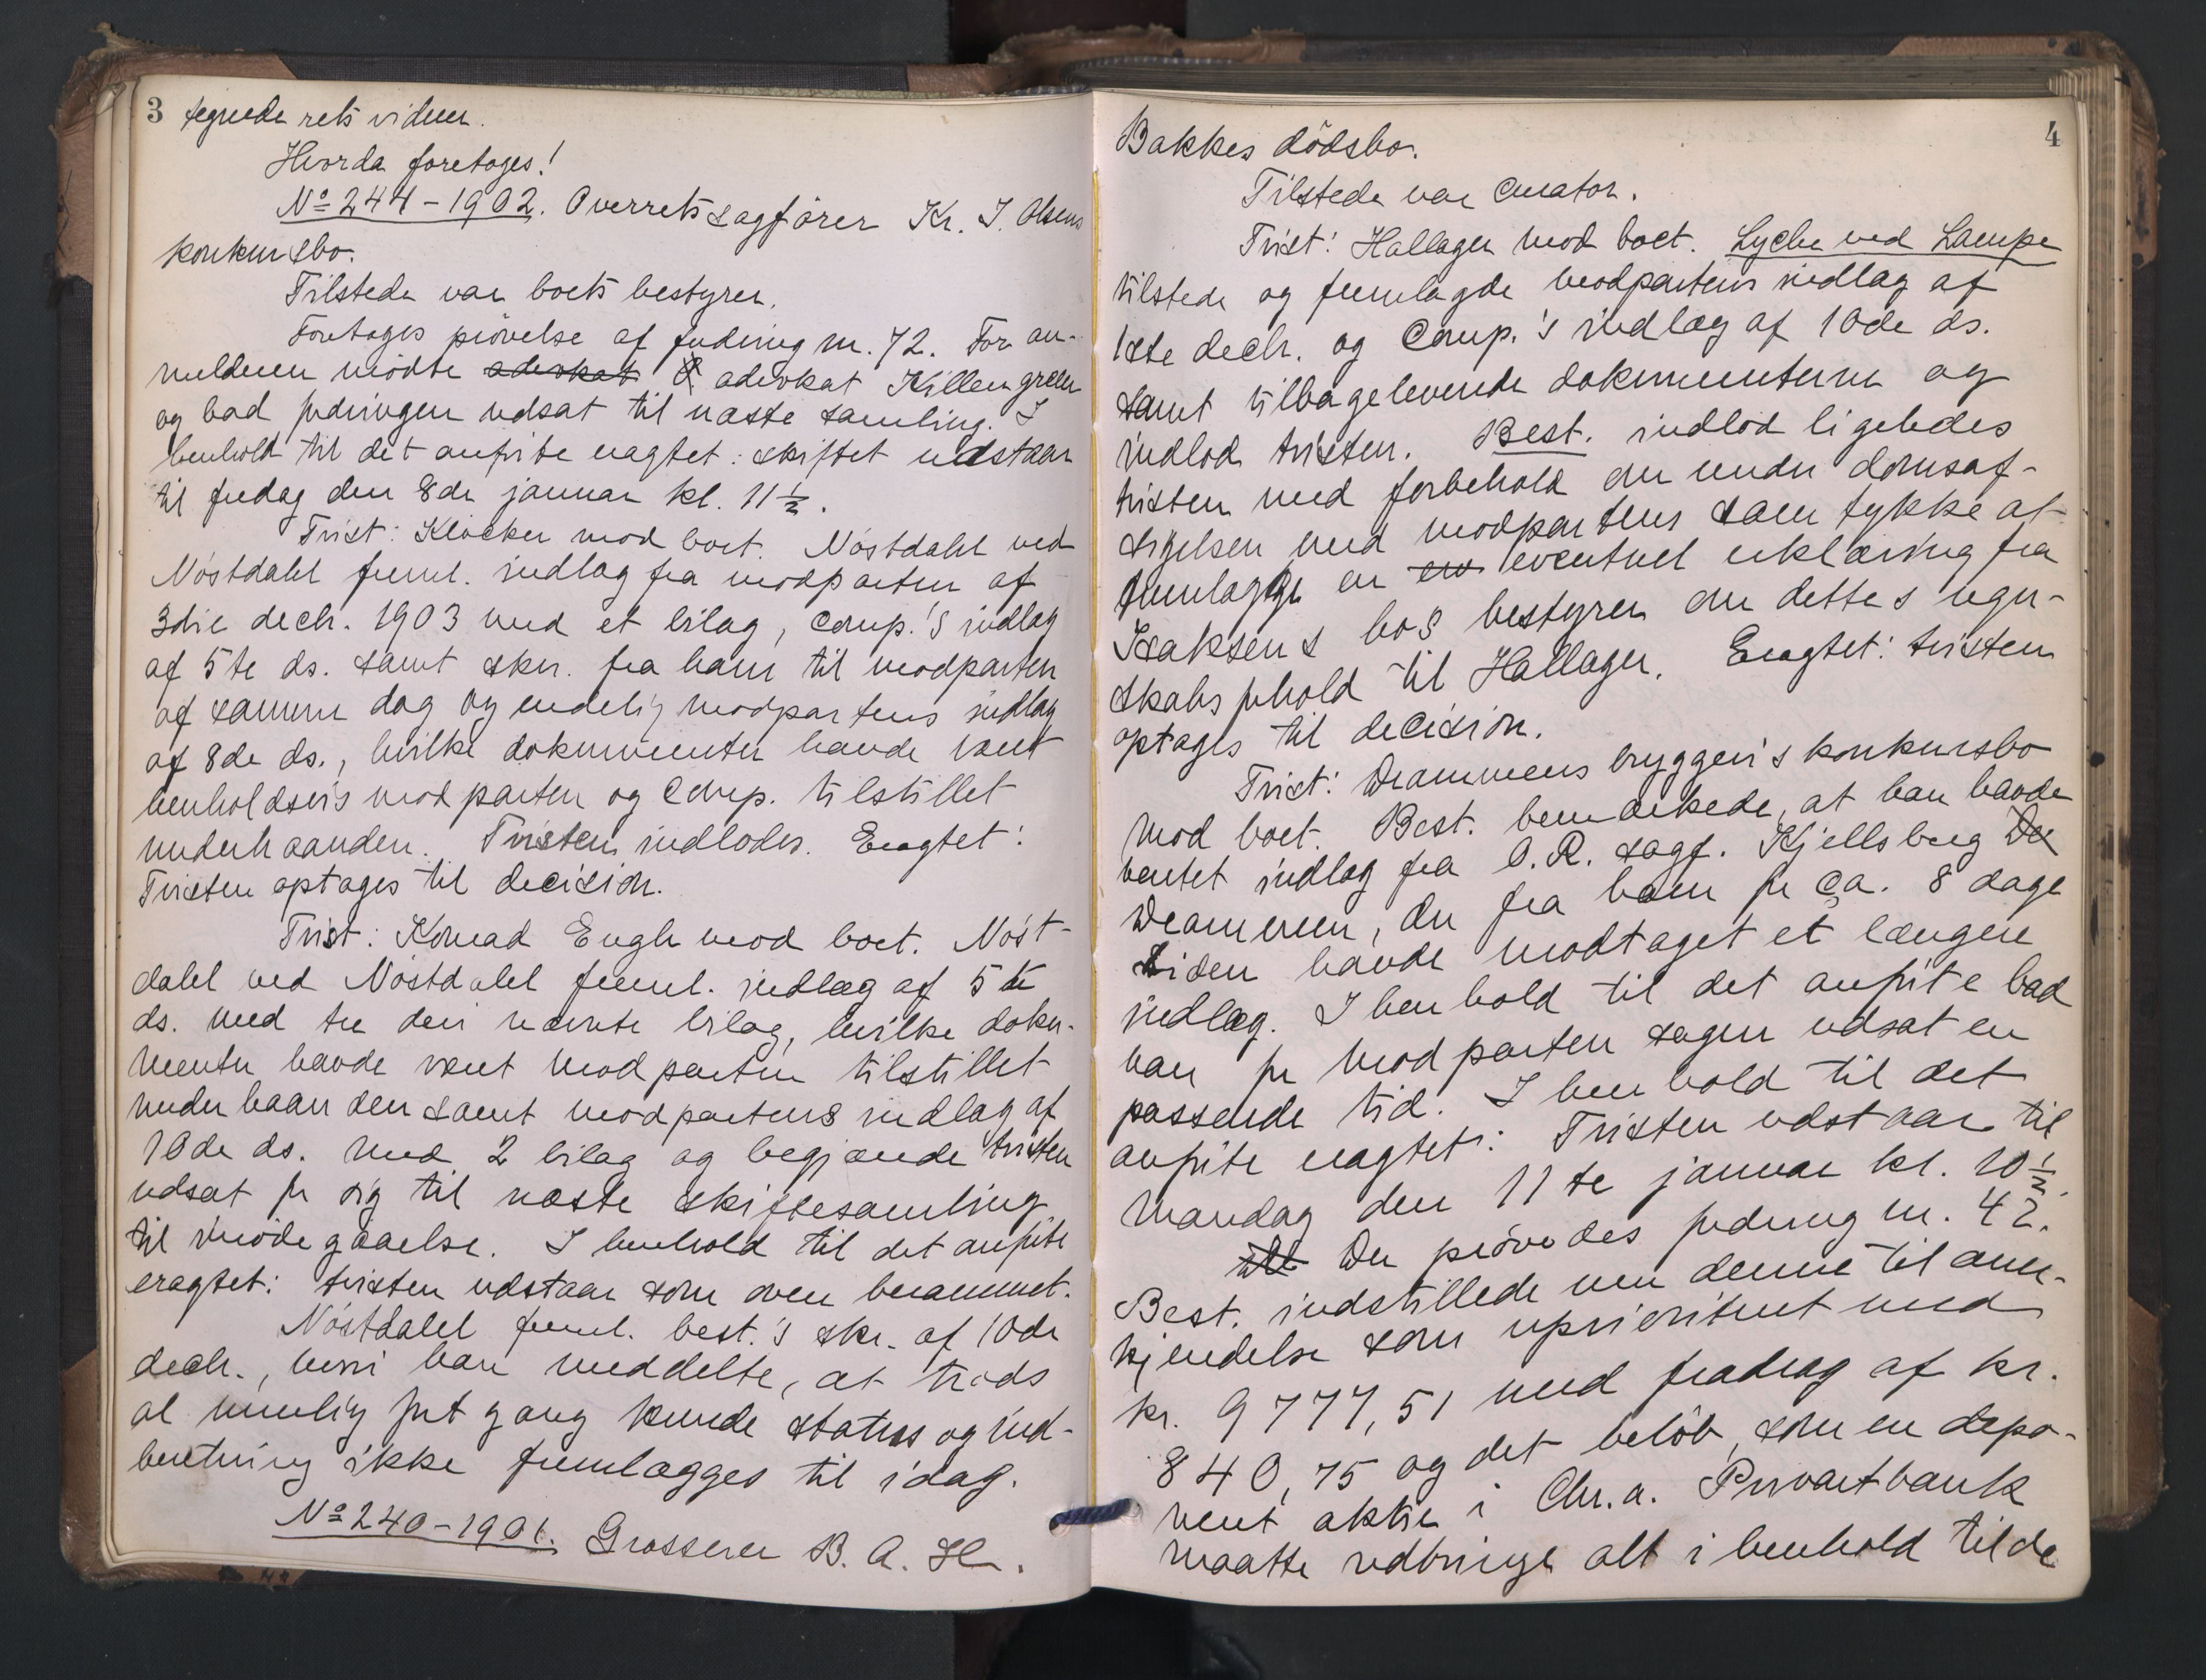 3 tegnede rets vidner.
Hvorda foretoges!
No 244-1902. Overretssagfører Kr. J. Olsens
konkursbo.
Tilstede var boets bestyrer.
Foretoges prøvelse af fordring nr. 72. For an-
melderen mødte advokat K advokat Killengreen
og bad fordringen udsat til næste samling. I
henhold til det anførte eragtet: skiftet udstaar
til fredag den 8de januar kl. 11 1/2.
Tvist: Klocker mod boet. Nöstdahl ved
Nöstdahl freml. indlæg fra modparten af
3die decbr. 1903 med et bilag, Comp.'s indlæg
af 5te ds. samt skr. fra ham til modparten
af samme dag og endelig modpartens indlæg
af 8de ds., hvilke dokumenter havde været
henholdsvis modparten og Comp. tilstillet
underhaanden. Tvisten indlodes. Eragtet:
Tvisten optages til decision.
Tvist: Konrad Engh mod boet. Nöst-
dahl ved Nöstdahl freml. indlæg af 5te
ds. med tre deri nævnte bilag, hvilke doku-
menter havde været modparten tilstillet
underhaanden samt modpartens indlæg af
10de ds. med 2 bilag og begjærede tvisten
udsat for sig til næste skiftesamling
til imødegaaelse. I henhold til det anførte
eragtet: tvisten udstaar som oven berammet.
Nöstdahl freml. best.'s skr. af 10de
decbr., hvori han meddelte, at trods
al mulig fortgang kunde status og ind-
beretning ikke fremlægges til idag.
No 240-1901. Grosserer B. A. H.
4
Bakkes dödsbo.
Tilstede var Curator.
Tvist: Hallager mod boet. Lyche ved Lampe
tilstede og fremlagde modpartens indlæg af
1ste decbr. og Comp.'s indlæg af 10de ds.
samt tilbageleverede dokumenterne og
indlod tvisten. Best. indlod ligeledes
tvisten med forbehold om under domsaf-
sigelsen med modpartens samtykke at
fremlægge en en eventuel erklæring fra
Isaksens bos bestyrer om dettes regn-
skabsforhold til Hallager. Eragtet: tvisten
optages til decision.
Tvist: Drammens bryggeri's konkursbo
mod boet. Best. bemærkede, at han havde
ventet indlæg fra O.R. sagf. Kjellsberg Dr
Drammen, der fra ham for ca. 8 dage
siden havde modtaget et længere
indlæg. I henhold til det anførte bad
han for modparten sagen udsat en
passende tid. I henhold til det
anførte eragtet: Tvisten udstaar til
mandag den 11te januar kl. 10 1/2.
Der prøvedes fordring nr. 42.
Best. indstillede nu denne til aner-
kjendelse som uprioritert med
kr. 9777,51 med fradrag af kr.
840,75 og det beløb, som en depo-
neret aktie i Chr.a. Privatbank
maatte udbringe alt i henhold til de